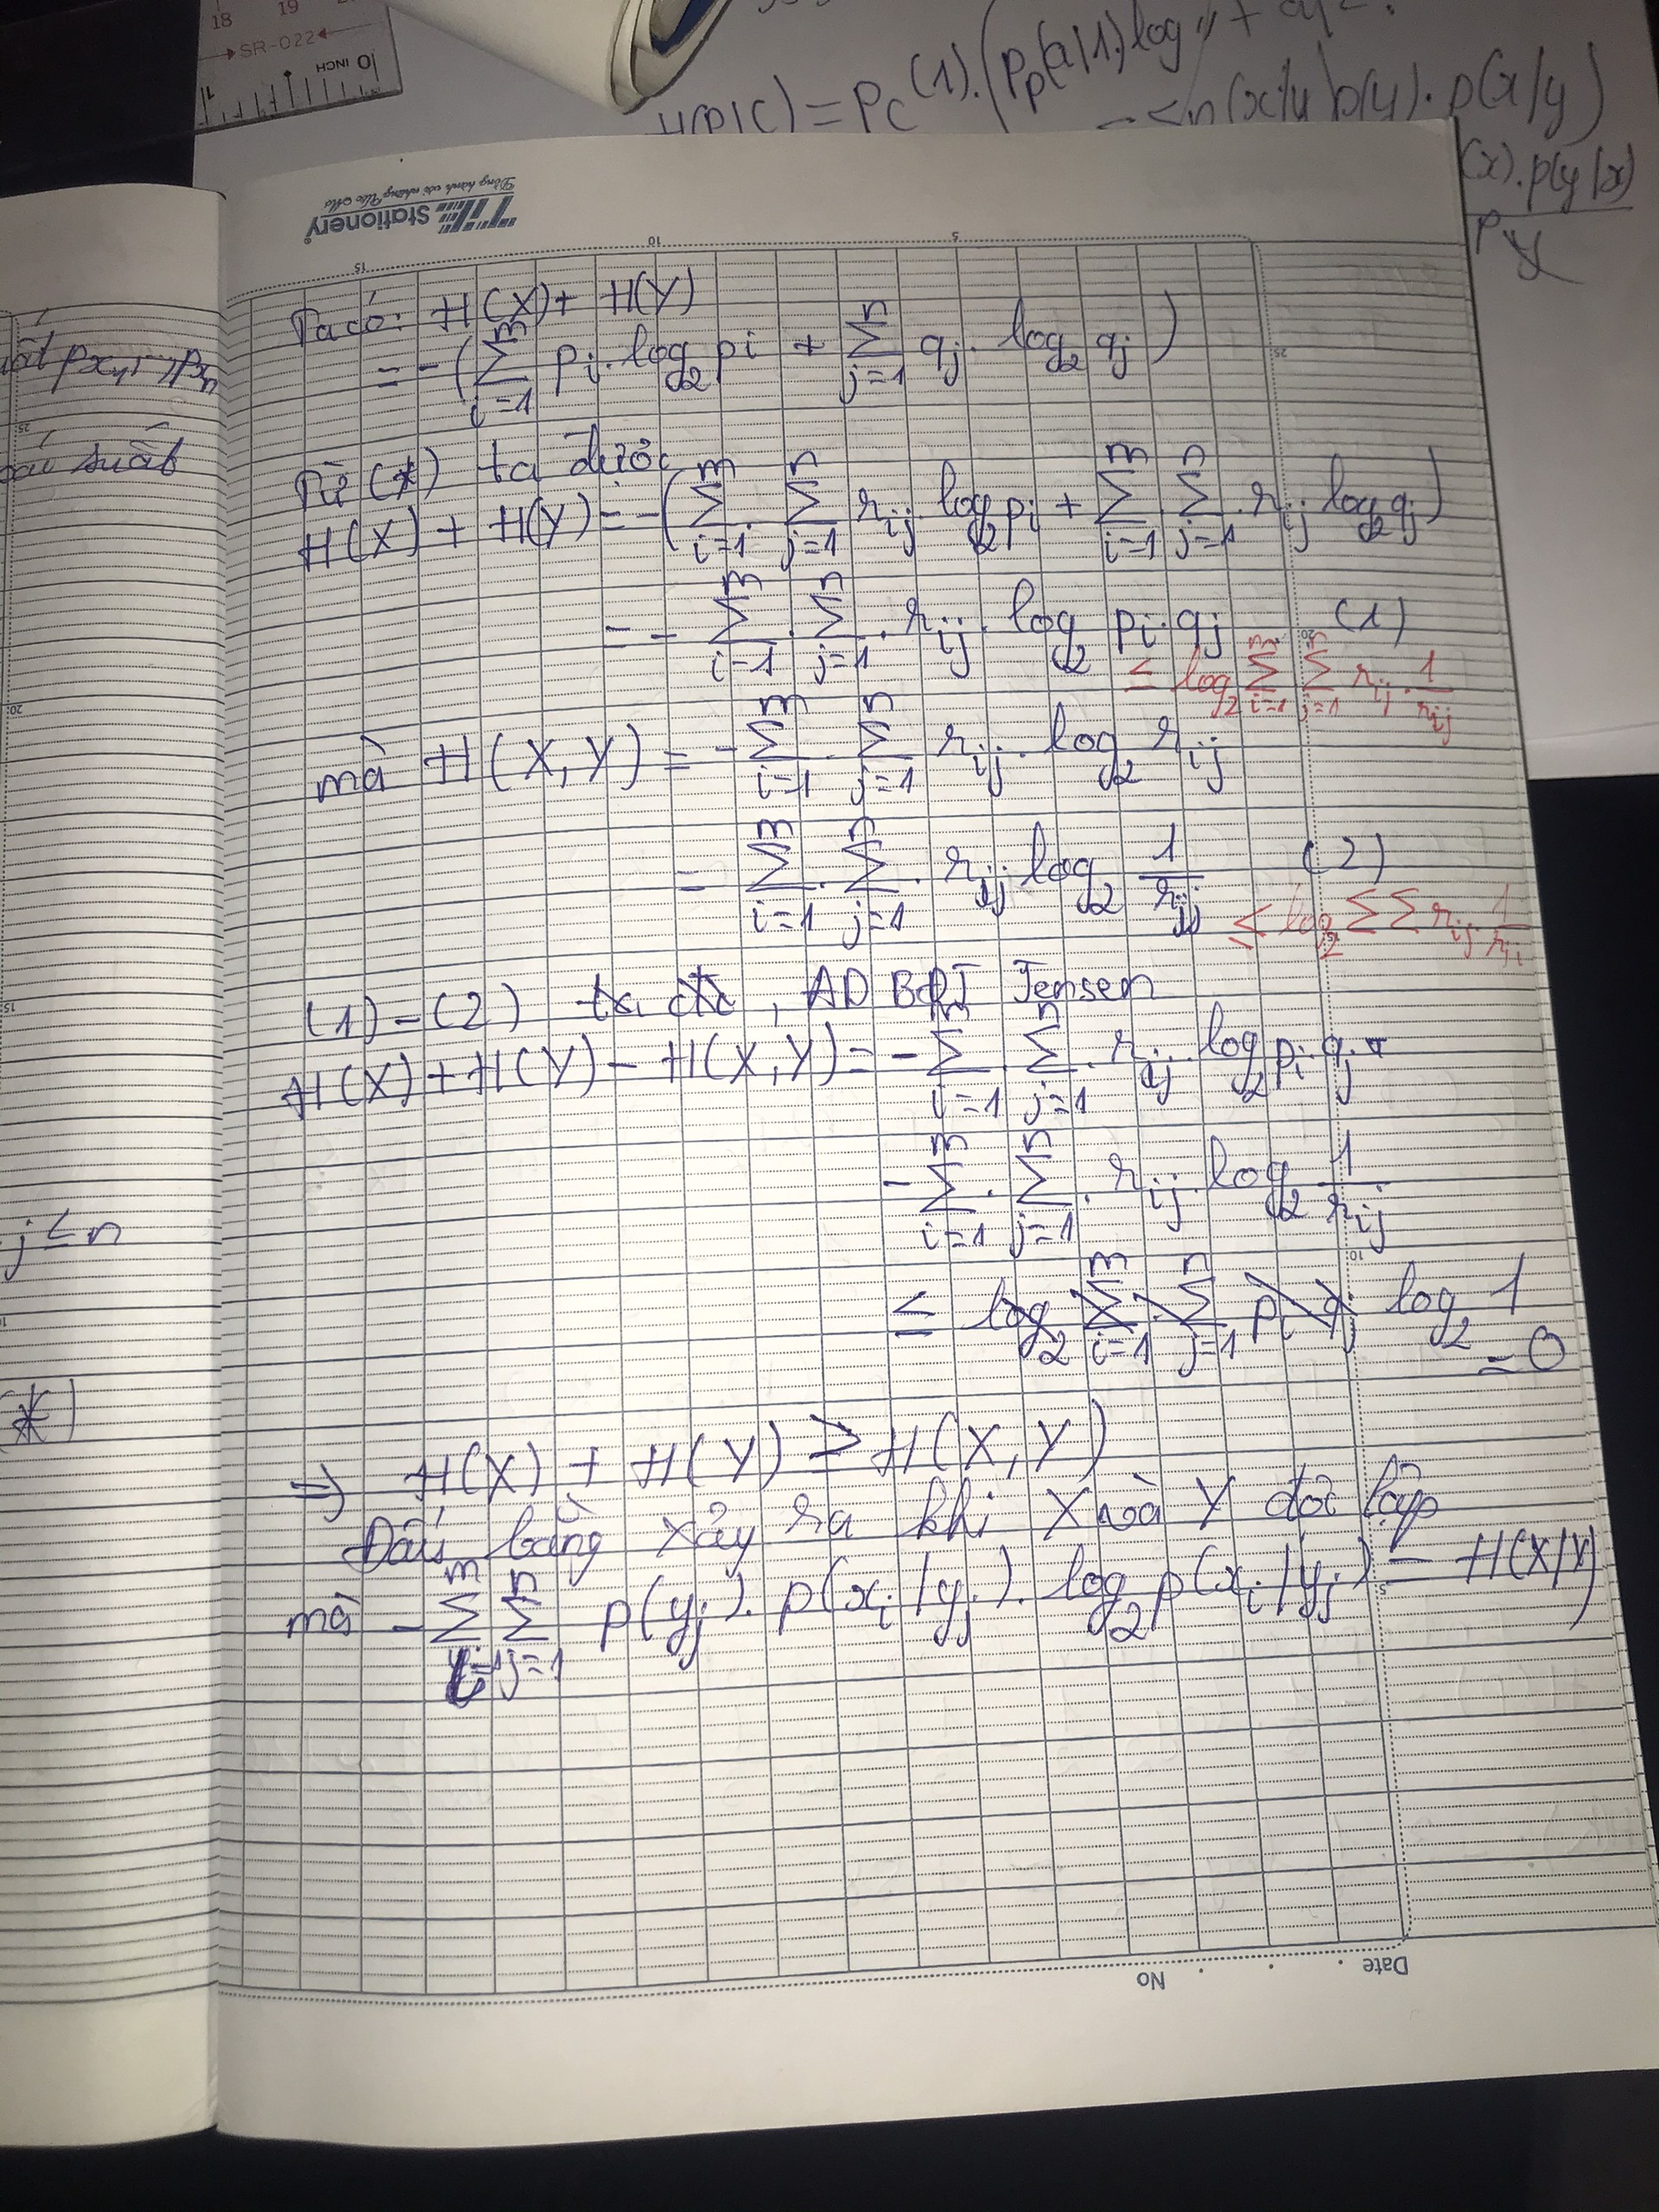 18 19
SR-022
10 INCH
H(P|C) = Pc(1).(Pp(a|1).log
p(y). p(x/y)
(x). p(y|x)
Py
TL Stationery
Đồng hành với những Ước Mơ
15 10 5
Ta có: H(X) + H(Y)
= -(∑_{i=1}^{m} pi. log_2 pi + ∑_{j=1}^{n} qj. log_2 qj)
Từ (*) ta được
H(X) + H(Y) = -(∑_{i=1}^{m}. ∑_{j=1}^{n} r_ij. log_2 pi + ∑_{i=1}^{m}. ∑_{j=1}^{n}. r_ij log_2 qj)
= - ∑_{i=1}^{m}. ∑_{j=1}^{n}. r_ij. log_2 pi.qj (1)
≤ log_2 ∑_{i=1}^{m} ∑_{j=1}^{n} r_ij. 1/r_ij
mà H(X,Y) = - ∑_{i=1}^{m}. ∑_{j=1}^{n} r_ij. log_2 r_ij
= ∑_{i=1}^{m}. ∑_{j=1}^{n}. r_ij log_2 1/r_ij (2)
≤ log_2 ∑ ∑ r_ij. 1/r_ij
(1) - (2) , AD BĐT Jensen
H(X) + H(Y) - H(X,Y) = - ∑_{i=1}^{m}. ∑_{j=1}^{n}. r_ij. log_2 pi.qj
- ∑_{i=1}^{m}. ∑_{j=1}^{n}. r_ij. log_2 1/r_ij
≤ log_2 ∑_{i=1}^{m}. ∑_{j=1}^{n} pi qj log_2 1
= 0
⇒ H(X) + H(Y) ≥ H(X,Y)
Dấu bằng xảy ra khi X và Y độc lập
mà - ∑_{i=1}^{m} ∑_{j=1}^{n} p(yj). p(xi/yj). log_2 p(xi/yj) = H(X/Y)
suất
j ≤ n
(*)
No
Date